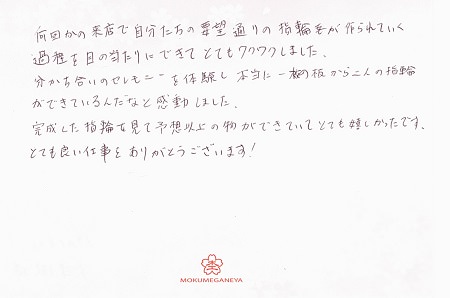 何回かの来店で自分たちの要望通りの指輪が作られていく
過程を目の当たりにできてとてもワクワクしました。
分かち合いのセレモニーを体験し本当に一枚の板から二人の指輪
ができているんだなと感動しました。
完成した指輪を見て予想以上の物ができていてとても嬉しかったです。
とても良い仕事をありがとうございます!
MOKUMEGANEYA